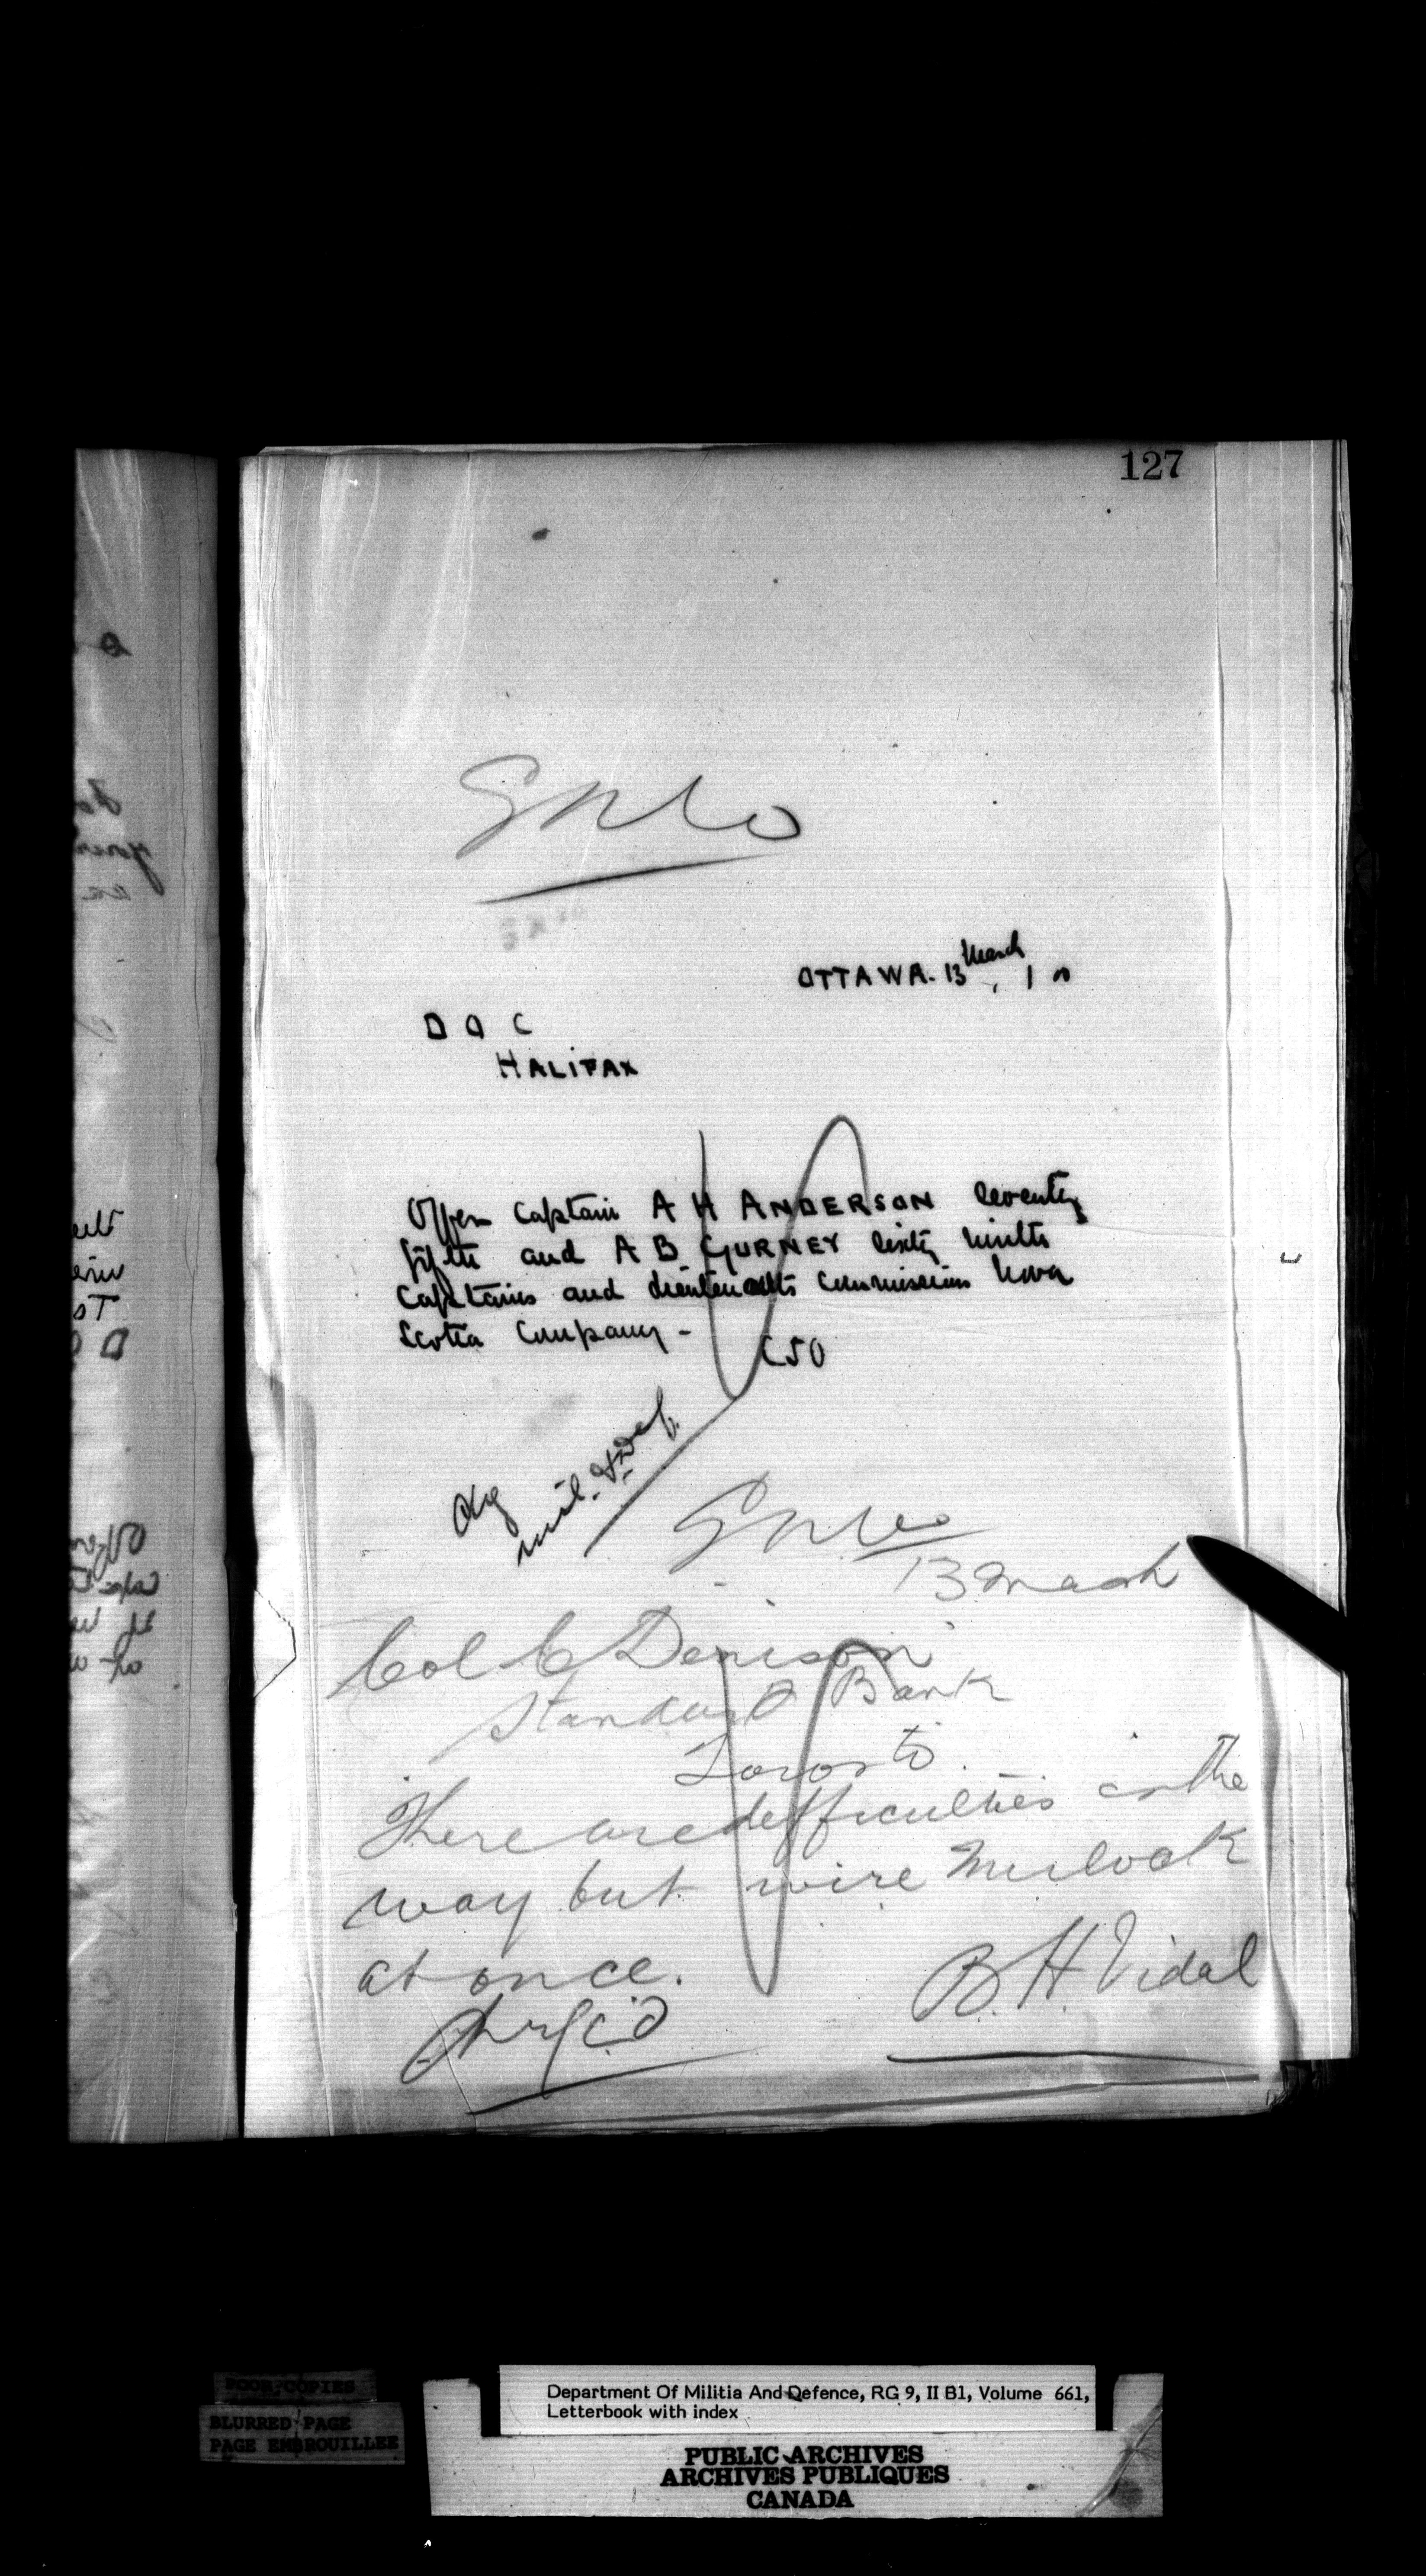 127
OTTAWA. 13 March, 1 00
D O C
HALIFAX
Offer Captain A H ANDERSON seventy
fifth and A B GURNEY sixty ninth
Captains and Lieutenants Commission Nova
Scotia Company -
CSO
Chg
Mil. & Def.
13 March
Col C Denison
Standard Bank
Toronto
There are difficulties in the
way but wire Mulock
at once.
B. H. Vidal
POOR COPIES
BLURRED PAGE
PAGE EMBROUILLEE
Department Of Militia And Defence, RG 9, II B1, Volume 661,
Letterbook with index
PUBLIC ARCHIVES
ARCHIVES PUBLIQUES
CANADA